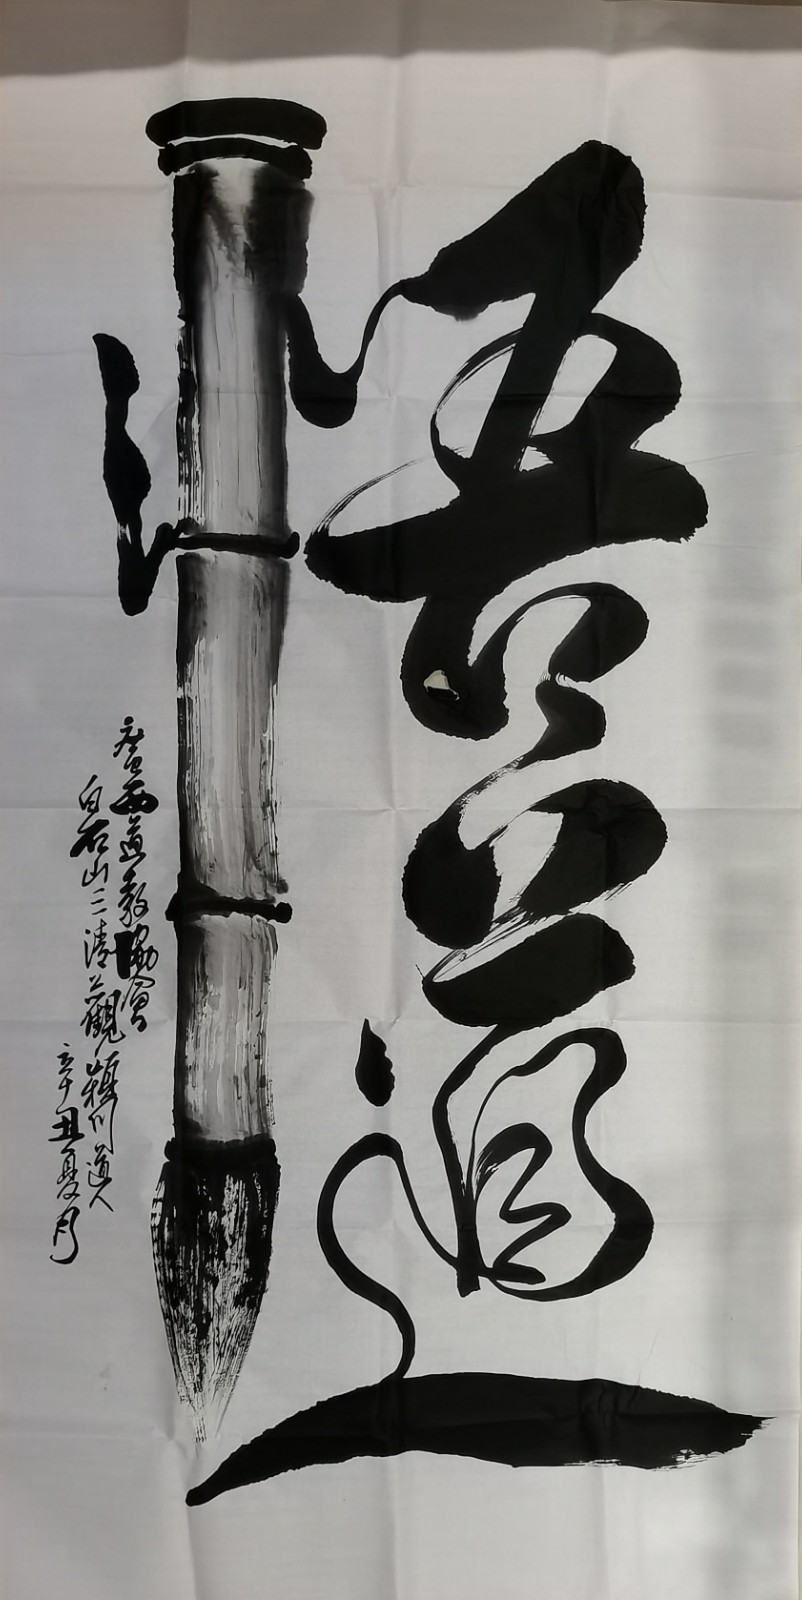 悟道
廣西道教協會
白石山三清觀
道人
辛丑夏月